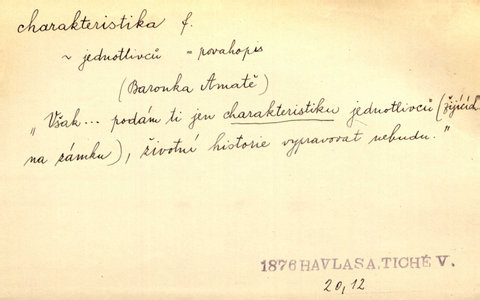 charakteristika f.
~ jednotlivců = povahopis
(Baronka Amatě)
„Však... podám ti jen charakteristiku jednotlivců (žijících
na zámku), životní historie vypravovat nebudu."
1876 HAVLASA, TICHÉ V.
20, 12